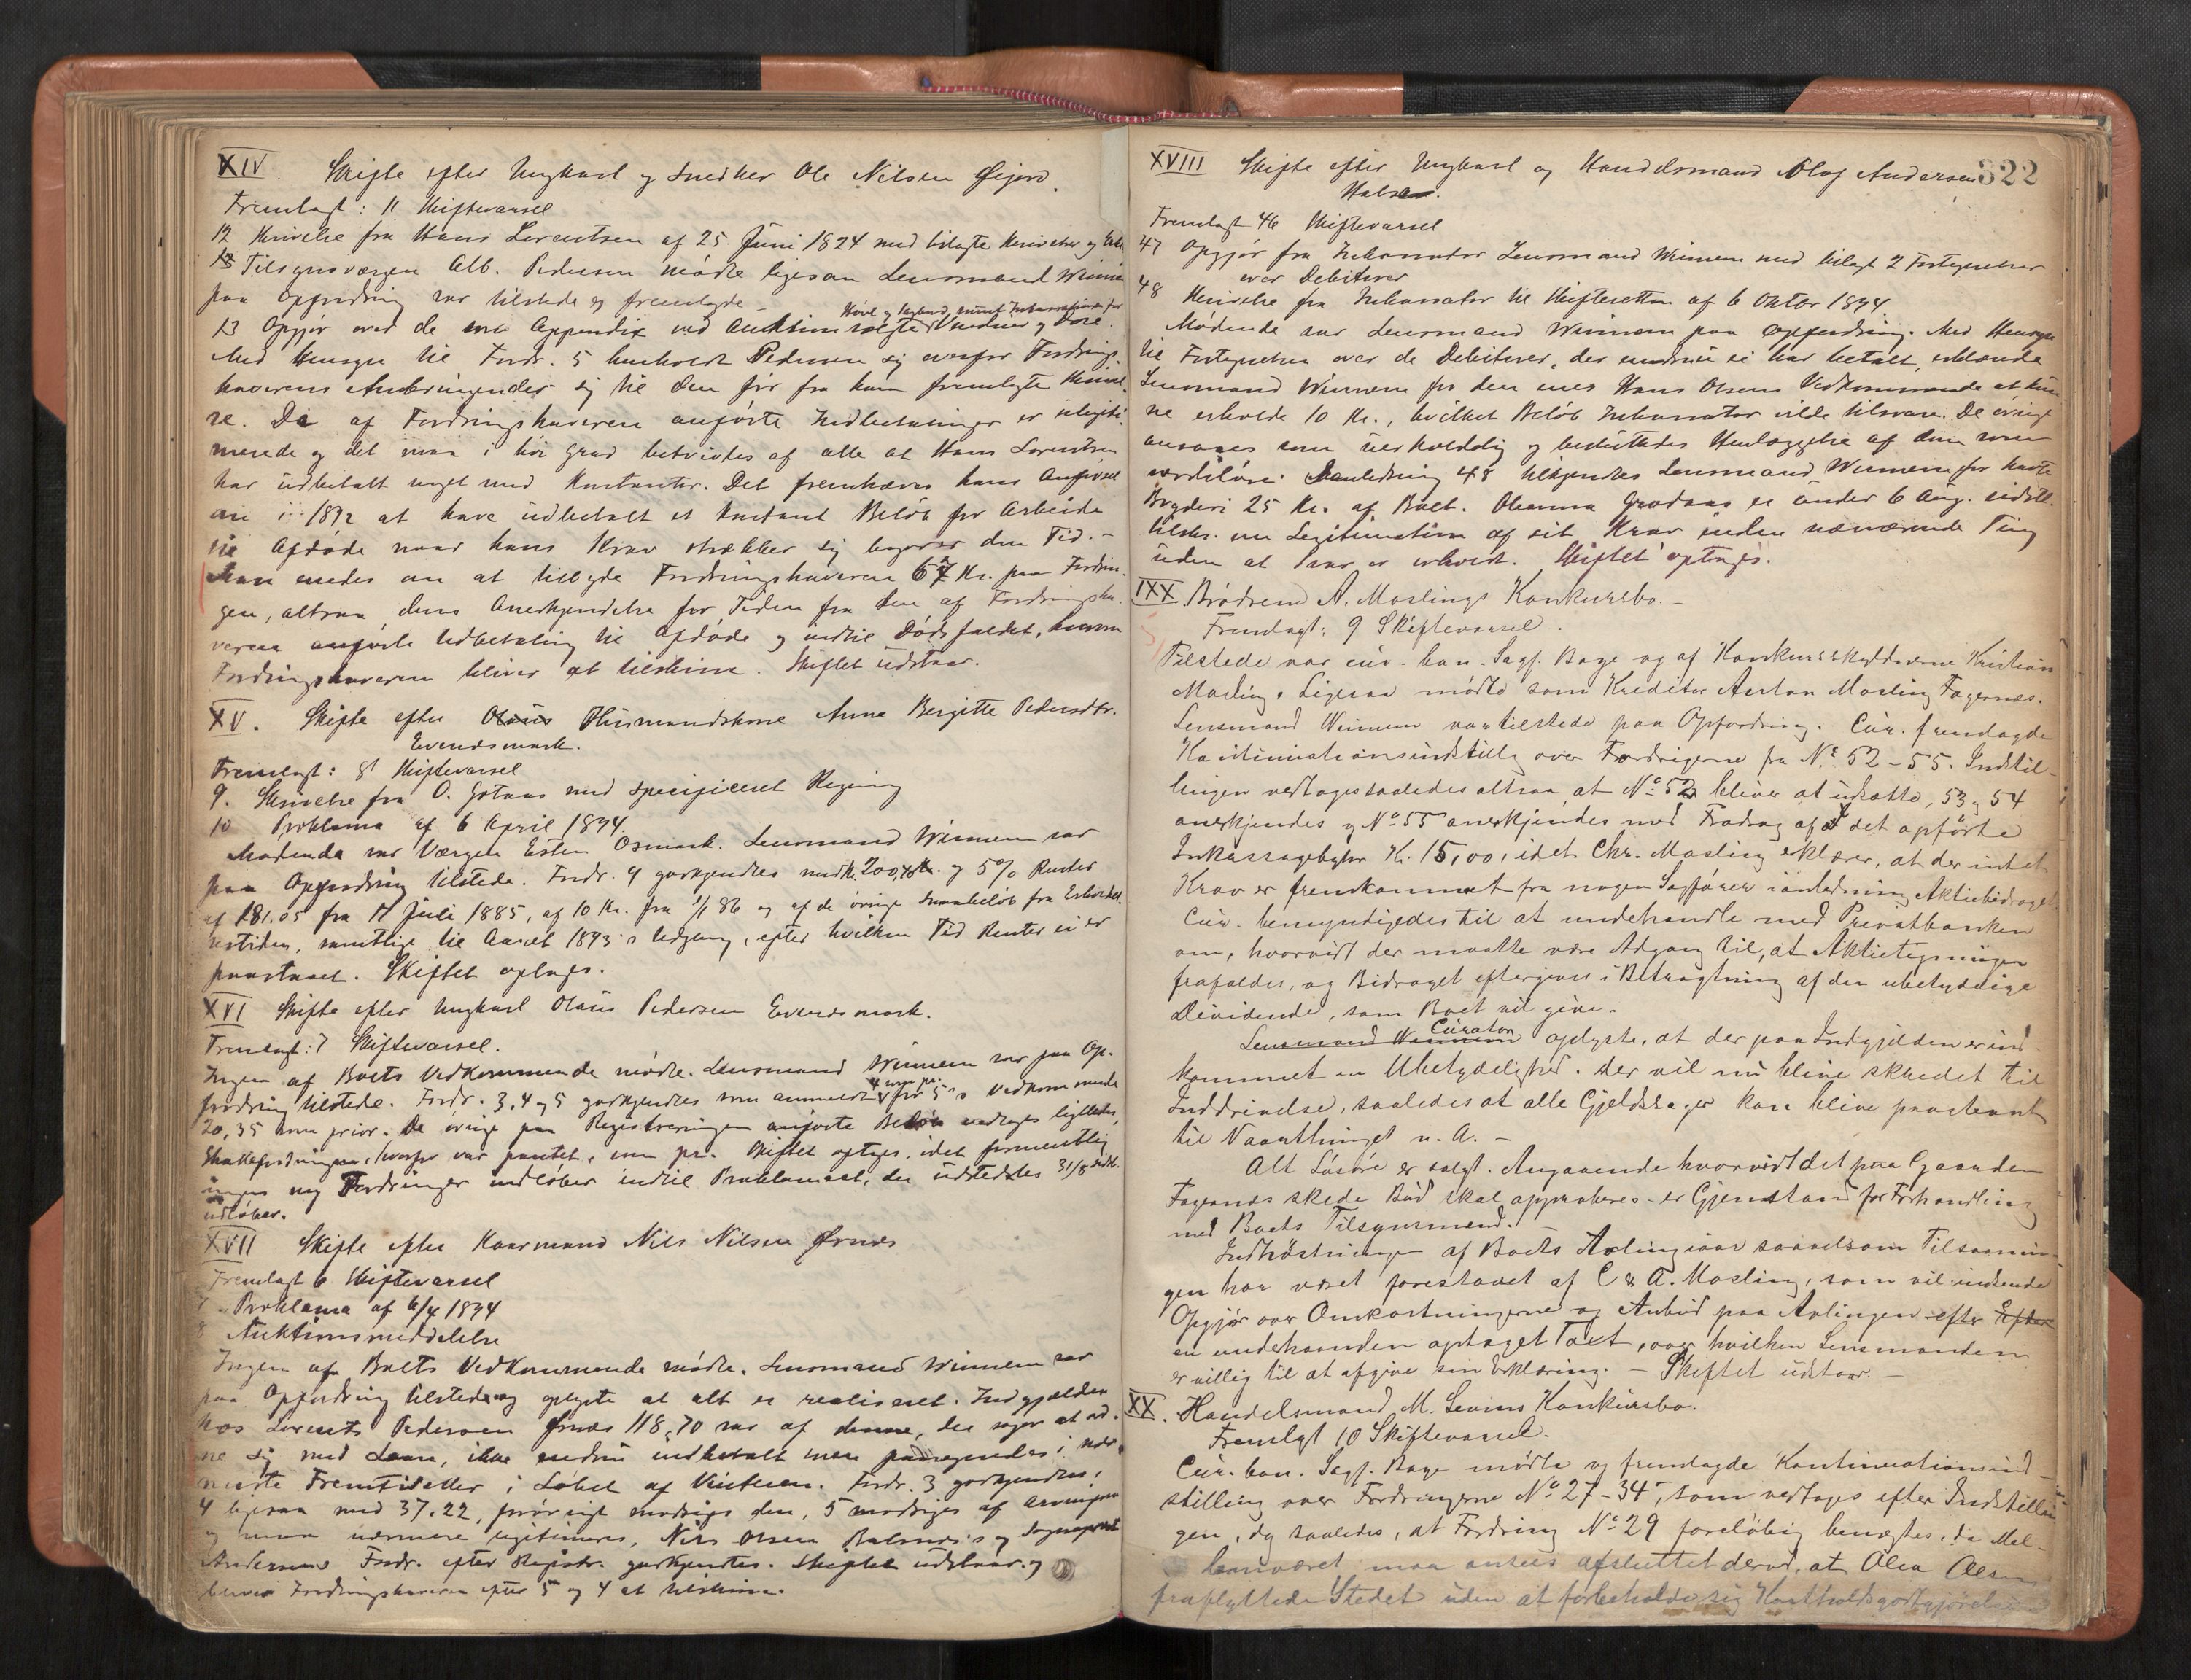 XIV. Skifte efter Ungkarl og Snedker Ole Nilsen Øijord.
Fremlagt: 11 Skiftevarsel
12 Skrivelse fra Hans Lorentsen af 25 Juni 1894 med bilagte Skrivelser og
13 Tilsynsværgen Alb. Pedersen mødte ligesom Lensmand Winnem
paa Opfordring var tilstede og fremlagde
13 Opgjør over de som Appendix ved Auktion solgte
Med Hensyn til Fordr. 5 henholdt Pedersen sig overfor Fordrings-
haverens Anbringender sig til den før fra ham fremlagte Skrivel-
se. De af Fordringshaveren anførte Indbetalinger er ulegiti-
merede og det maa i høi Grad betvivles af alle at Hans Lorentsen
har udbetalt noget med Kontanter. Det fremhæves hans Anførsel
om i 1892 at have udbetalt et kontant Beløb for Arbeide
til Afdøde naar hans Krav strækker sig bagover den Tid. -
Man enedes om at tilbyde Fordringshaveren 67 Kr. paa Fordrin-
gen, altsaa dens Anerkjendelse for Tiden fra den af Fordringsha-
veren anførte Udbetaling til Afdøde og indtil Dødsfaldet, hvorom
Fordringshaveren bliver at tilskrive. Skiftet udstaar.
XV. Skifte efter Olaus Husmandskone Anne Bergitte Pedersdtr.
Evenesmark.
Fremlagt: 8 Skiftevarsel
9. Skrivelse fra O. Gotaas med specificeret Regning
10 Proklama af 6 April 1894.
Mødende var Værgen Esten Osmark. Lensmand Winnem var
paa Opfordring tilstede. Fordr. 9 godkjendtes med Kr. 200,40 og 5% Renter
af 181.05 fra 17 Juli 1885, af 10 Kr. fra 1/1 86 og af de øvrige Smaabeløb fra Erhvervel-
sestiden, samtlige til Aaret 1893's Udgang, efter hvilken Tid Renter ei er
paastaaet. Skiftet optages.
XVI Skifte efter Ungkarl Olaus Pedersen Evenesmark.
Fremlagt: 7 Skiftevarsel.
Ingen af Boets Vedkommende mødte. Lensmand Winnem var paa Op-
fordring tilstede. Fordr. 3, 4 og 5 godkjendtes som anmeldt for 5's Vedkommende
20,35 som prior. De øvrige paa Registreringen anførte Beløb vedtages ligeledes,
Skattefordringen, hvorfor var pantet, som pr. Skiftet optages, idet formentlig
ingen ny Fordringer indløber indtil Proklamaet, der udstedtes 31/8 sidstl.
udløber.
XVII Skifte efter Kaarmand Nils Nilsen Ørnes
Fremlagt 6 Skiftevarsel
7 Proklama af 6/4 1894
8 Auktionsmeddelelse
Ingen af Boets Vedkommende mødte. Lensmand Winnem var
paa Opfordring tilstede og oplyste at alt er realiseret. Indgjælden
hos Lorents Pedersen Ørnes 118,70 var af denne, der søger at ord-
ne sig med Laan, ikke endnu indbetalt men paaregnedes i nær-
meste Fremtid eller i Løbet af Vinteren. Fordr. 3 godkjendtes,
4 ligesaa med 37.22, prioritet modsiges den, 5 modsiges af Arvingerne
og maa nærmere legitimeres, Nils Olsen Balsnes's og Sogneprest
Andersens Fordr. efter Registr. godkjendtes. Skiftet udstaar og
bliver Fordringshaverne efter 5 og 4 at tilskrive.
322
XVIII Skifte efter Ungkarl og Handelsmand Olaf Andersen
Fremlagt 46 Skiftevarsel
47 Opgjør fra Inkassator Lensmand Winnem med bilagt 2 Fortegnelser
over Debitorer
48 Skrivelse fra Inkassator til Skifteretten af 6 Oktbr 1894.
Mødende var Lensmand Winnem paa Opfordring. Med Hensyn
til Fortegnelsen over de Debitorer, der endnu ei har betalt, erklærede
Lensmand Winnem for den enes Hans Olsens Vedkommende at kun-
ne erholde 10 Kr., hvilket Beløb Inkassator vilde tilsvare. De øvrige
ansaaes som uerholdelig og besluttedes Henlæggelse af dem som
værdiløse. I Anledning 48 tilkjendtes Lensmand Winnem for havte
Bryderi 25 Kr. af Boet. Oleanna Grodaas er under 6 Aug. sidstl.
tilskr. om Legitimation af sit Krav inden nærværende Ting
uden at Svar er erhvervet. Skiftet optages.
IXX Brødrene A. Moslings Konkursbo. -
Fremlagt: 9 Skiftevarsel.
Tilstede var cur. bon. Sagf. Bage og af Konkursskyldnerne Kristian
Mosling. Ligesaa mødte som Kreditor Anton Mosling Fagernes.
Lensmand Winnem var tilstede paa Opfordring. Cur. fremlagde
Kontinuationsindstilling over Fordringerne fra No 52-55. Indstil-
lingen vedtoges saaledes altsaa, at No 52 bliver at udsætte, 53 og 54
anerkjendes og No 55 anerkjendes med Fradrag af det opførte
Inkassogebyhr Kr. 15,00, idet Chr. Mosling erklærer, at der intet
Krav er fremkommet fra nogen Sagfører i anledning Aktiebidraget.
Cur. bemyndigedes til at underhandle med Privatbanken
om, hvorvidt der maatte være Adgang til, at Aktietegningen
frafaldes, og Bidraget eftergives i Betragtning af den ubetydelige
Dividende, som Boet vil give.
Lensmand Winnem Curator oplyste, at der paa Indgjelden er ind-
kommet en Ubetydelighed. Der vil nu blive skredet til
Inddrivelse, saaledes at alle Gjeldssager kan blive paastevnt
til Vaarthinget n. A. -
Alt Løsøre er solgt. Angaaende hvorvidt det paa Gaarden
Fagernes skede Bud skal approberes er Gjenstand for Forhandling
med Boets Tilsynsmend.
Indhøstningen af Boets Avling iaar saavelsom Tilsaanin-
gen har været forestaaet af C & A. Mosling, som vil indsende
Opgjør over Omkostningerne og Anbud paa Avlingen efter Efter
en underhaanden optaget Taxt, over hvilken Lensmanden
er villig til at afgive sin Erklæring. - Skiftet udstaar. -
XX. Handelsmand M. Sevins Konkursbo.
Fremlagt 10 Skiftevarsel.
Cur. bon. Sagf. Bage mødte og fremlagde Kontinuationsind-
stilling over Fordringerne No 27-34, som vedtoges efter Indstillin-
gen, dog saaledes, at Fordring No 29 foreløbig benægtes, da Mel-
lemværet maa ansees afsluttet derved, at Olea Olsen
fraflyttede Stedet uden at forbeholde sig